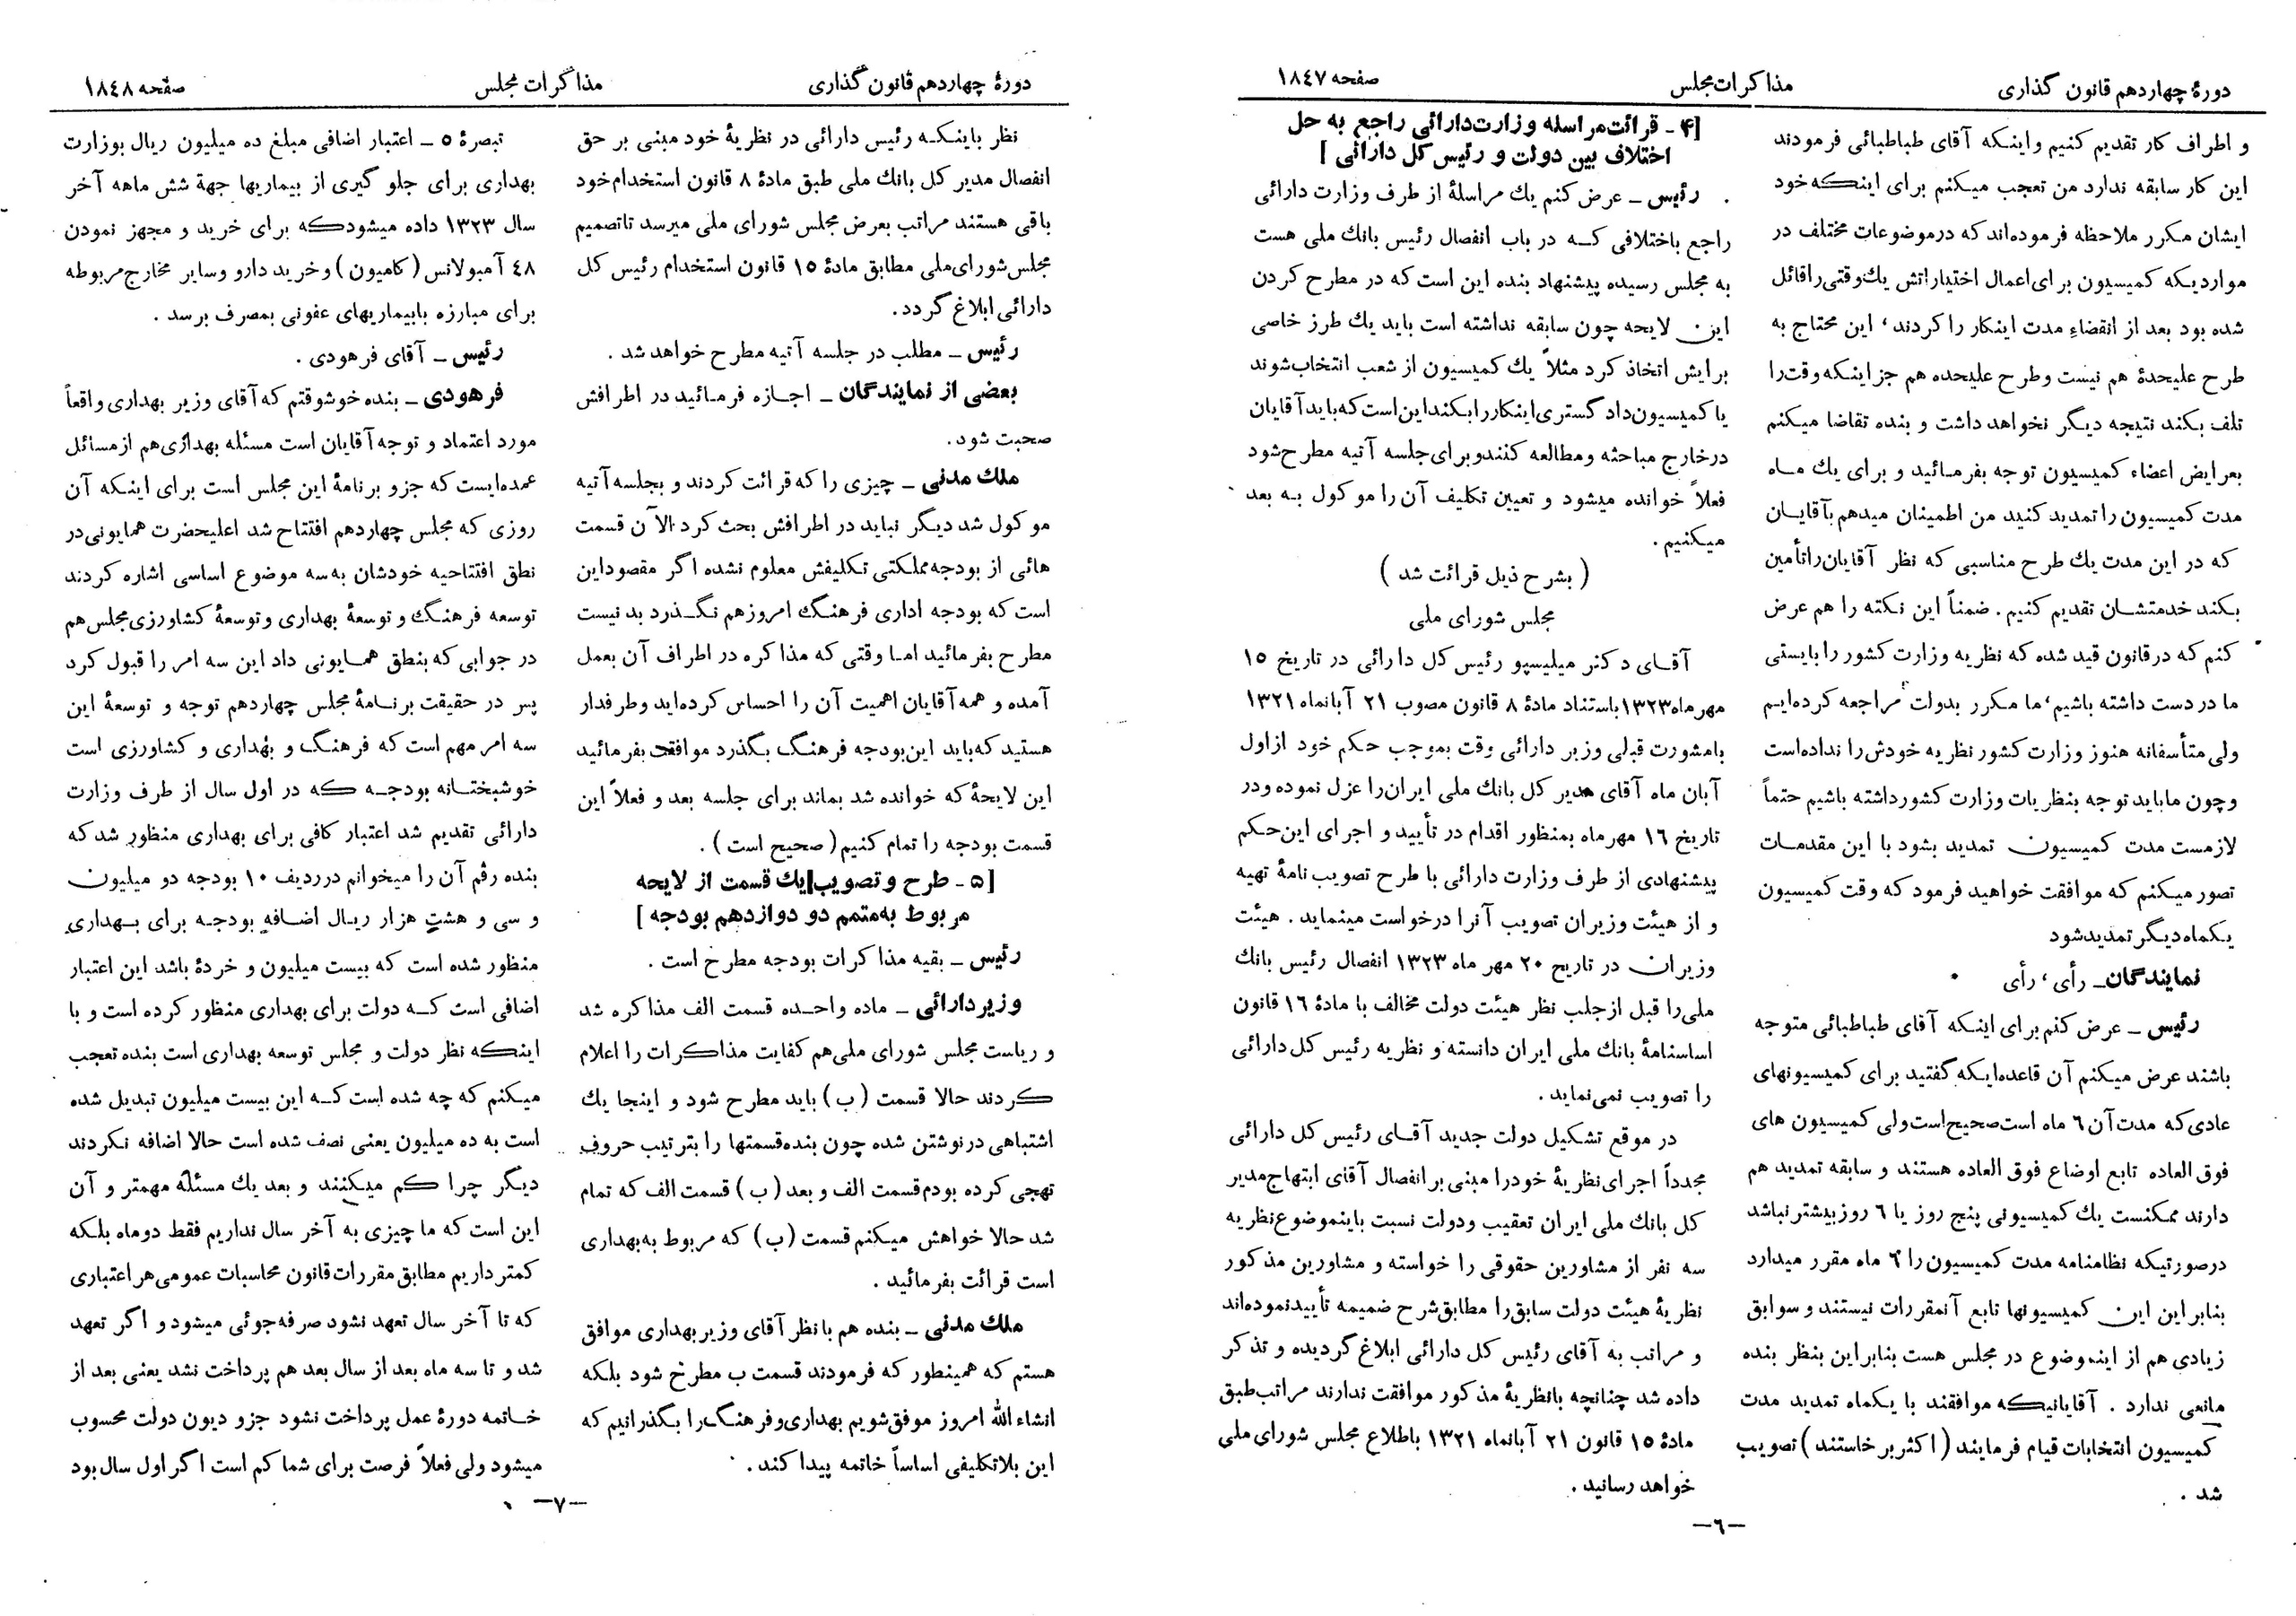 دورهٔ چهاردهم قانون گذاری
مذاکرات مجلس
صفحه ۱۸٤۷
و اطراف کار تقدیم کنیم و اینکه آقای طباطبائی فرمودند
این کار سابقه ندارد من تعجب میکنم برای اینکه خود
ایشان مکرر ملاحظه فرموده‌اند که در موضوعات مختلف در
مواردیکه کمیسیون برای اعمال اختیاراتش یك وقتی را قائل
شده بود بعد از انقضاء مدت اینکار را کردند، این محتاج به
طرح علیحدهٔ هم نیست و طرح علیحده هم جز اینکه وقت را
تلف بکند نتیجه دیگر نخواهد داشت و بنده تقاضا میکنم
بعرایض اعضاء کمیسیون توجه بفرمائید و برای یك ماه
مدت کمیسیون را تمدید کنید من اطمینان میدهم بآقایان
که در این مدت یك طرح مناسبی که نظر آقایان را تأمین
بکند خدمتشان تقدیم کنیم. ضمناً این نکته را هم عرض
کنم که در قانون قید شده که نظریه وزارت کشور را بایستی
ما در دست داشته باشیم، ما مکرر بدولت مراجعه کرده‌ایم
ولی متأسفانه هنوز وزارت کشور نظریه خودش را نداده است
و چون ما باید توجه بنظریات وزارت کشور داشته باشیم حتماً
لازمست مدت کمیسیون تمدید بشود با این مقدمات
تصور میکنم که موافقت خواهید فرمود که وقت کمیسیون
یکماه دیگر تمدید شود
نمایندگان_ رأی، رأی
رئیس _ عرض کنم برای اینکه آقای طباطبائی متوجه
باشند عرض میکنم آن قاعده‌ایکه گفتید برای کمیسیونهای
عادی که مدت آن ٦ ماه است صحیح است ولی کمیسیون های
فوق العاده تابع اوضاع فوق العاده هستند و سابقه تمدید هم
دارند ممکنست یك کمیسیونی پنج روز یا ٦ روز بیشتر نباشد
درصورتیکه نظامنامه مدت کمیسیون را ٦ ماه مقرر میدارد
بنابر این این کمیسیونها تابع آنمقررات نیستند و سوابق
زیادی هم از اینموضوع در مجلس هست بنابر این بنظر بنده
مانعی ندارد . آقایانیکه موافقند با یکماه تمدید مدت
کمیسیون انتخابات قیام فرمایند (اکثر برخاستند) تصویب
شد .
[۴ - قرائت مراسله وزارت دارائی راجع به حل
اختلاف بین دولت و رئیس کل دارائی]
رئیس _ عرض کنم یك مراسلهٔ از طرف وزارت دارائی
راجع باختلافی که در باب انفصال رئیس بانك ملی هست
به مجلس رسیده پیشنهاد بنده این است که در مطرح کردن
این لایحه چون سابقه نداشته است باید یك طرز خاصی
برایش اتخاذ کرد مثلاً یك کمیسیون از شعب انتخاب شوند
یا کمیسیون دادگستری اینکار را بکند این است که باید آقایان
در خارج مباحثه و مطالعه کنند و برای جلسه آتیه مطرح شود
فعلاً خوانده میشود و تعیین تکلیف آن را موکول به بعد
میکنیم.
( بشرح ذیل قرائت شد )
مجلس شورای ملی
آقای دکتر میلیسپو رئیس کل دارائی در تاریخ ۱۵
مهرماه ۱۳۲۳ باستناد مادهٔ ۸ قانون مصوب ۲۱ آبانماه ۱۳۲۱
بامشورت قبلی وزیر دارائی وقت بموجب حکم خود از اول
آبان ماه آقای مدیر کل بانك ملی ایران را عزل نموده و در
تاریخ ۱٦ مهرماه بمنظور اقدام در تأیید و اجرای این حکم
پیشنهادی از طرف وزارت دارائی با طرح تصویب نامهٔ تهیه
و از هیئت وزیران تصویب آنرا درخواست مینماید . هیئت
وزیران در تاریخ ۲۰ مهر ماه ۱۳۲۳ انفصال رئیس بانك
ملی را قبل از جلب نظر هیئت دولت مخالف با مادهٔ ۱٦ قانون
اساسنامهٔ بانك ملی ایران دانسته و نظریه رئیس کل دارائی
را تصویب نمی‌نماید .
در موقع تشکیل دولت جدید آقای رئیس کل دارائی
مجدداً اجرای نظریهٔ خود را مبنی بر انفصال آقای ابتهاج مدیر
کل بانك ملی ایران تعقیب و دولت نسبت باینموضوع نظریه
سه نفر از مشاورین حقوقی را خواسته و مشاورین مذکور
نظریهٔ هیئت دولت سابق را مطابق شرح ضمیمه تأیید نموده‌اند
و مراتب به آقای رئیس کل دارائی ابلاغ گردیده و تذکر
داده شد چنانچه بانظریهٔ مذکور موافقت ندارند مراتب طبق
مادهٔ ۱۵ قانون ۲۱ آبانماه ۱۳۲۱ باطلاع مجلس شورای ملی
خواهد رسانید .
—٦—
دورهٔ چهاردهم قانون گذاری
مذاکرات مجلس
صفحه ۱۸٤۸
نظر باینکه رئیس دارائی در نظریهٔ خود مبنی بر حق
انفصال مدیر کل بانك ملی طبق مادهٔ ۸ قانون استخدام خود
باقی هستند مراتب بعرض مجلس شورای ملی میرسد تا تصمیم
مجلس شورای ملی مطابق مادهٔ ۱۵ قانون استخدام رئیس کل
دارائی ابلاغ گردد.
رئیس _ مطلب در جلسه آتیه مطرح خواهد شد .
بعضی از نمایندگان _ اجازه فرمائید در اطرافش
صحبت شود.
ملك مدنی _ چیزی را که قرائت کردند و بجلسه آتیه
موکول شد دیگر نباید در اطرافش بحث کرد الآن قسمت
هائی از بودجه مملکتی تکلیفش معلوم نشده اگر مقصود این
است که بودجه اداری فرهنگ امروز هم نگذرد بد نیست
مطرح بفرمائید اما وقتی که مذاکره در اطراف آن بعمل
آمده و همه آقایان اهمیت آن را احساس کرده‌اید و طرفدار
هستید که باید این بودجه فرهنگ بگذرد موافقت بفرمائید
این لایحهٔ که خوانده شد بماند برای جلسه بعد و فعلاً این
قسمت بودجه را تمام کنیم (صحیح است) .
[۵ - طرح و تصویب یك قسمت از لایحه
مربوط به متمم دو دوازدهم بودجه]
رئیس _ بقیه مذاکرات بودجه مطرح است .
وزیر دارائی _ ماده واحده قسمت الف مذاکره شد
و ریاست مجلس شورای ملی هم کفایت مذاکرات را اعلام
کردند حالا قسمت (ب) باید مطرح شود و اینجا یك
اشتباهی در نوشتن شده چون بنده قسمتها را بترتیب حروف
تهجی کرده بودم قسمت الف و بعد (ب) قسمت الف که تمام
شد حالا خواهش میکنم قسمت (ب) که مربوط به بهداری
است قرائت بفرمائید .
ملك مدنی _ بنده هم با نظر آقای وزیر بهداری موافق
هستم که همینطور که فرمودند قسمت ب مطرح شود بلکه
انشاءالله امروز موفق شویم بهداری و فرهنگ را بگذرانیم که
این بلاتکلیفی اساساً خاتمه پیدا کند .
تبصرهٔ ۵ _ اعتبار اضافی مبلغ ده میلیون ریال بوزارت
بهداری برای جلو گیری از بیماریها جهة شش ماهه آخر
سال ۱۳۲۳ داده میشود که برای خرید و مجهز نمودن
٤۸ آمبولانس (کامیون) و خرید دارو و سایر مخارج مربوطه
برای مبارزه با بیماریهای عفونی بمصرف برسد .
رئیس _ آقای فرهودی .
فرهودی _ بنده خوشوقتم که آقای وزیر بهداری واقعاً
مورد اعتماد و توجه آقایان است مسئله بهداری هم از مسائل
عمده‌ایست که جزو برنامهٔ این مجلس است برای اینکه آن
روزی که مجلس چهاردهم افتتاح شد اعلیحضرت همایونی در
نطق افتتاحیه خودشان به سه موضوع اساسی اشاره کردند
توسعه فرهنگ و توسعهٔ بهداری و توسعهٔ کشاورزی مجلس هم
در جوابی که بنطق همایونی داد این سه امر را قبول کرد
پس در حقیقت برنامهٔ مجلس چهاردهم توجه و توسعهٔ این
سه امر مهم است که فرهنگ و بهداری و کشاورزی است
خوشبختانه بودجه که در اول سال از طرف وزارت
دارائی تقدیم شد اعتبار کافی برای بهداری منظور شد که
بنده رقم آن را میخوانم در ردیف ۱۰ بودجه دو میلیون
و سی و هشت هزار ریال اضافه بودجه برای بهداری
منظور شده است که بیست میلیون و خردهٔ باشد این اعتبار
اضافی است که دولت برای بهداری منظور کرده است و با
اینکه نظر دولت و مجلس توسعه بهداری است بنده تعجب
میکنم که چه شده است که این بیست میلیون تبدیل شده
است به ده میلیون یعنی نصف شده است حالا اضافه نکردند
دیگر چرا کم میکنند و بعد یك مسئله مهمتر و آن
این است که ما چیزی به آخر سال نداریم فقط دو ماه بلکه
کمتر داریم مطابق مقررات قانون محاسبات عمومی هر اعتباری
که تا آخر سال تعهد نشود صرفه جوئی میشود و اگر تعهد
شد و تا سه ماه بعد از سال بعد هم پرداخت نشد یعنی بعد از
خاتمه دورهٔ عمل پرداخت نشود جزو دیون دولت محسوب
میشود ولی فعلاً فرصت برای شما کم است اگر اول سال بود
—۷—